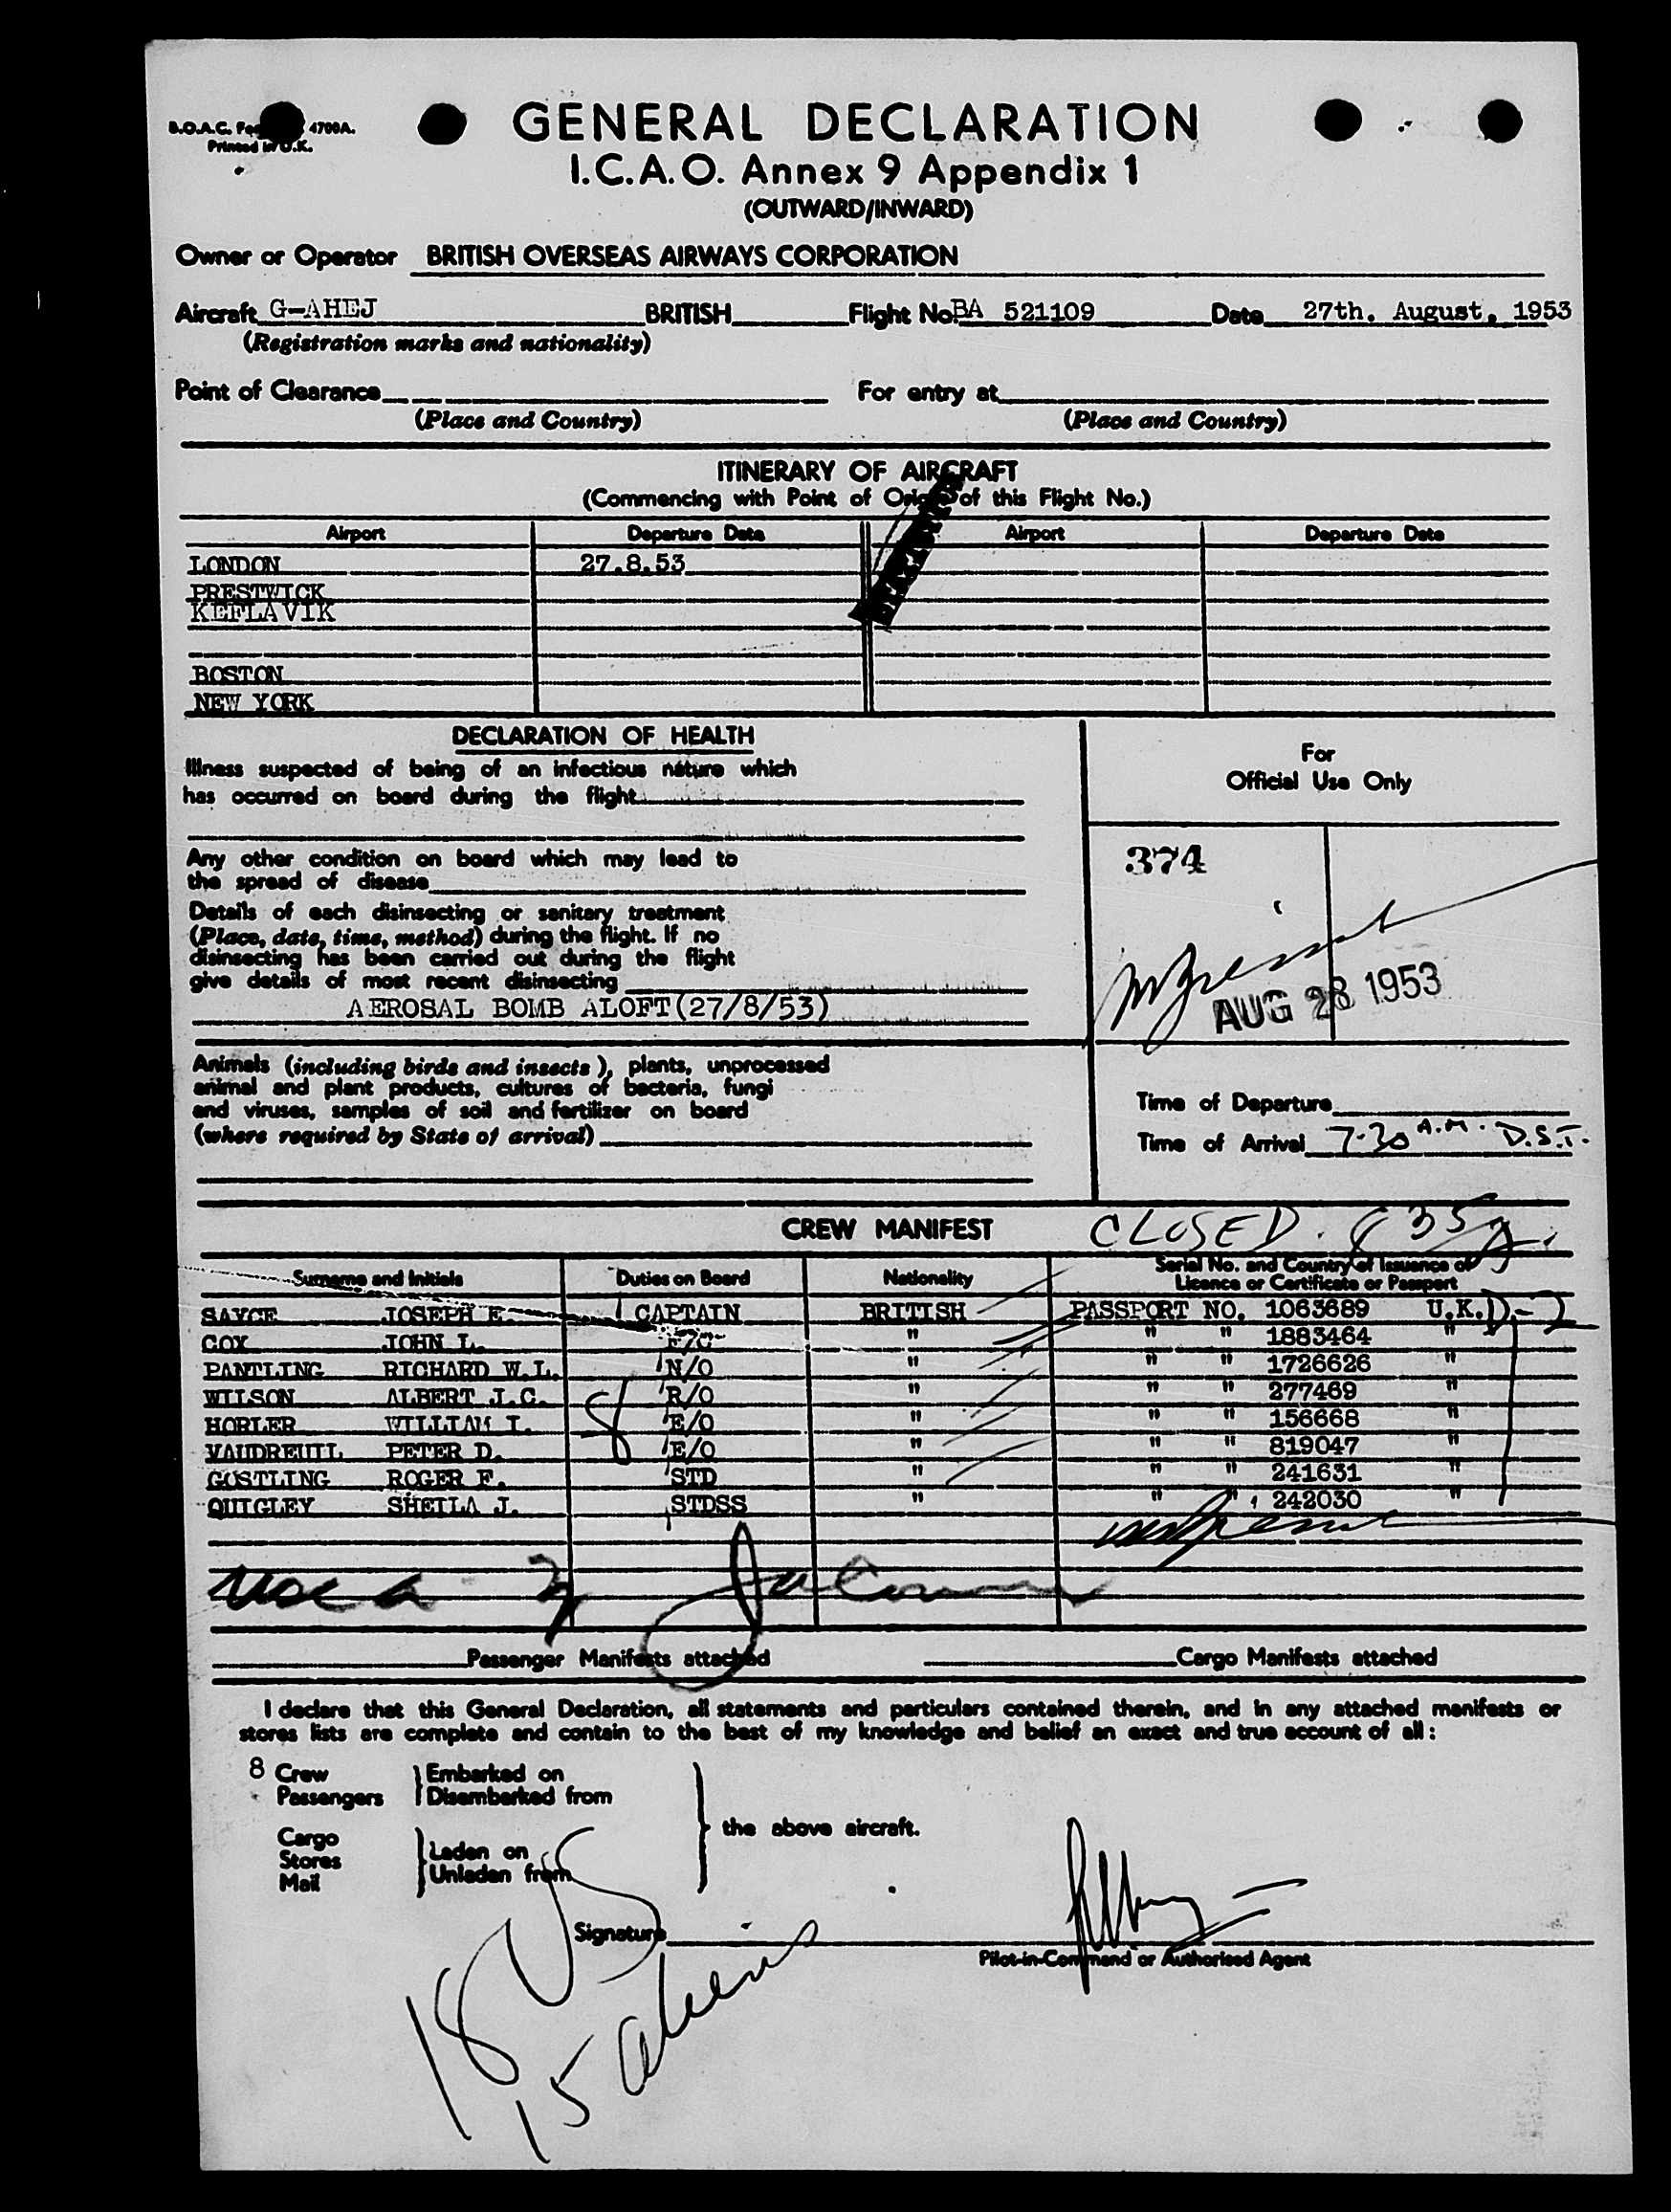 B.O.A.C. 4700A.
Printed in U.K.
GENERAL DECLARATION
I.C.A.O. Annex 9 Appendix 1
(OUTWARD/INWARD)
Owner or Operator BRITISH OVERSEAS AIRWAYS CORPORATION
Aircraft G-AHEJ BRITISH Flight No. BA 521109 Date 27th. August, 1953
(Registration marks and nationality)
Point of Clearance For entry at
(Place and Country) (Place and Country)
ITINERARY OF AIRCRAFT
(Commencing with Point of Origin of this Flight No.)
Airport Departure Date Airport Departure Date
LONDON 27.8.53
PRESTWICK
KEFLAVIK
BOSTON
NEW YORK
DECLARATION OF HEALTH
Illness suspected of being of an infectious nature which
has occurred on board during the flight
Any other condition on board which may lead to
the spread of disease
Details of each disinsecting or sanitary treatment
(Place, date, time, method) during the flight. If no
disinsecting has been carried out during the flight
give details of most recent disinsecting
AEROSAL BOMB ALOFT(27/8/53)
For
Official Use Only
374
AUG 28 1953
Animals (including birds and insects), plants, unprocessed
animal and plant products, cultures of bacteria, fungi
and viruses, samples of soil and fertilizer on board
(where required by State of arrival)
Time of Departure
Time of Arrival 7-30 A.M. D.S.T.
CREW MANIFEST CLOSED.
Surname and Initials Duties on Board Nationality Serial No. and Country of Issuance of
Licence or Certificate or Passport
SAYCE JOSEPH E. CAPTAIN BRITISH PASSPORT NO. 1063689 U.K. D-2
COX JOHN L. F/O " " " 1883464 "
PANTLING RICHARD W.L. N/O " " " 1726626 "
WILSON ALBERT J.C. R/O " " " 277469 "
HORLER WILLIAM I. E/O " " " 156668 "
VAUDREUIL PETER D. E/O " " " 819047 "
GOSTLING ROGER F. STD " " " 241631 "
QUIGLEY SHEILA J. STDSS " " " 242030 "
8
Passenger Manifests attached Cargo Manifests attached
I declare that this General Declaration, all statements and particulars contained therein, and in any attached manifests or
stores lists are complete and contain to the best of my knowledge and belief an exact and true account of all:
8 Crew Embarked on
Passengers Disembarked from
the above aircraft.
Cargo
Stores Laden on
Mail Unladen from
Signature
Pilot-in-Command or Authorised Agent
18 US
15 aliens